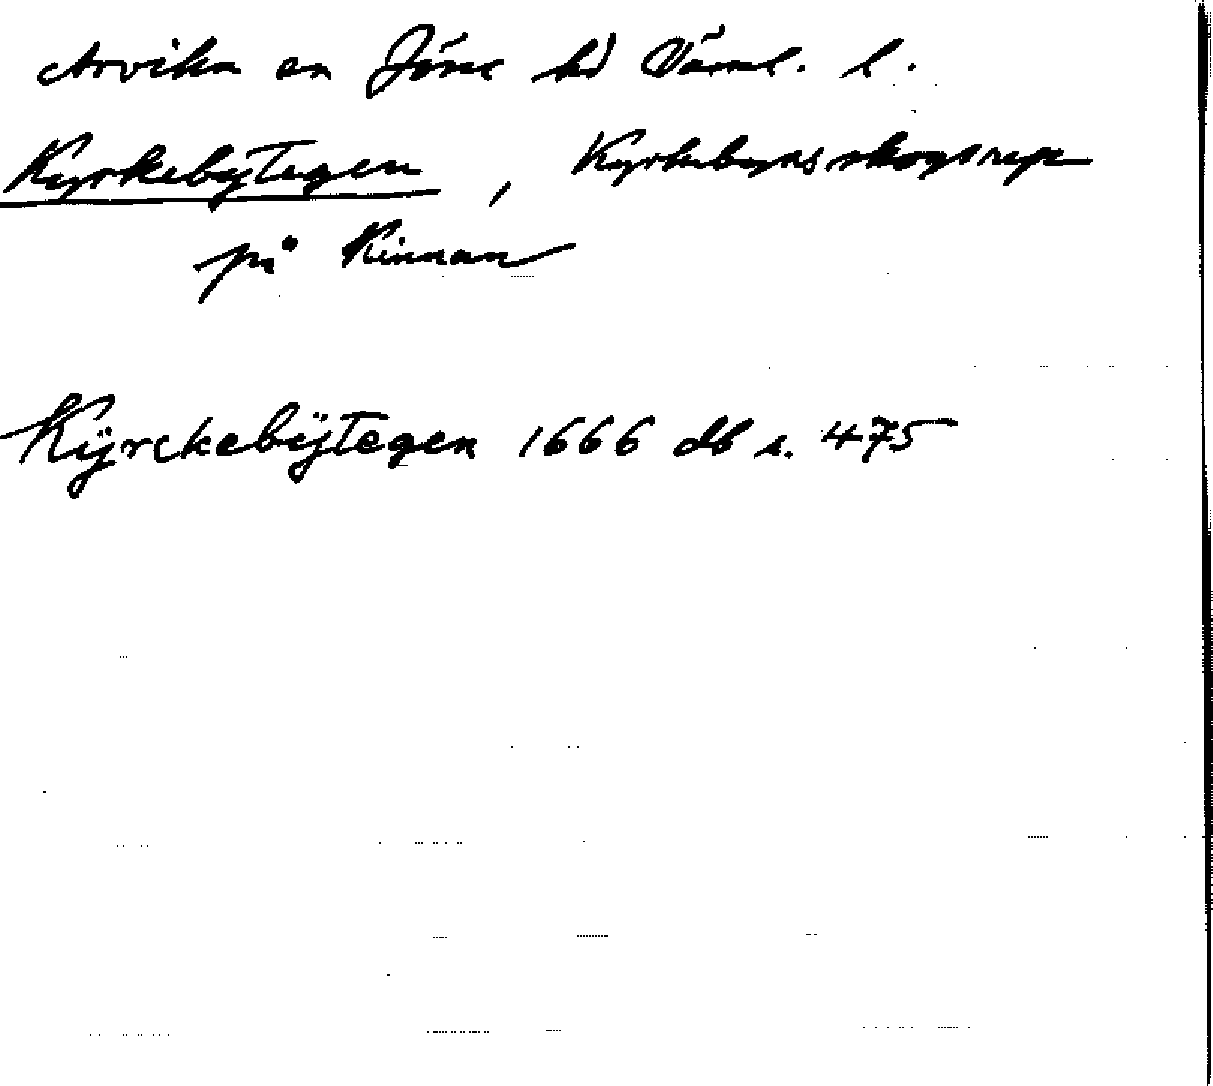 Arvika sn Jösse hd Värml. l.
Kyrkebytegen, Kyrkebyns skogsrep
på Kinnan
Kÿrckebÿtegen 1666 db s. 475